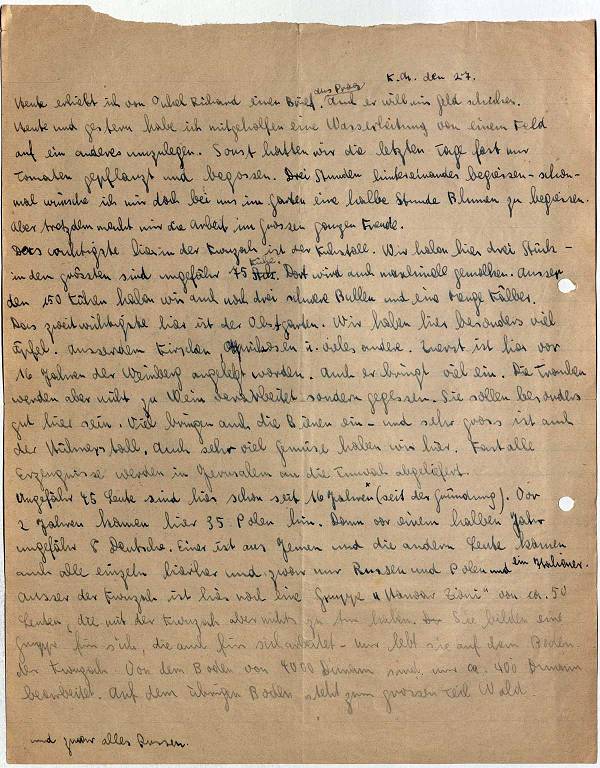 K.A. den 27.
Heute erhielt ich von Onkel Richard einen Brief aus Prag. Auch er will mir Geld schicken.
Heute und gestern habe ich mitgeholfen eine Wasserleitung von einem Feld
auf ein anderes umzulegen. Sonst hatten wir die letzten Tage fast nur
Tomaten gepflanzt und begossen. Drei Stunden hintereinander begiessen - schon-
mal wünsche ich mir doch bei uns im Garten eine halbe Stunde Blumen zu begiessen.
Aber trotzdem macht mir die Arbeit im Grossen ganzen Freude.
Das wichtigste hier in der Kwuzah ist der Kuhstall. Wir haben hier drei Stück -
in den grössten sind ungefähr 75 Kühe. Dort wird auch maschinell gemolken. Ausser
den 150 Kühen haben wir auch noch drei schwere Bullen und eine Menge Kälber.
Das zweitwichtigste hier ist der Obstgarten. Wir haben hier besonders viel
Äpfel. Ausserdem Kirschen, Aprikosen u. vieles andere. Zuerst ist hier vor
16 Jahren der Weinberg angelegt worden. Auch er bringt viel ein. Die Trauben
werden aber nicht zu Wein verarbeitet sondern gegessen. Sie sollen besonders
gut hier sein. Viel bringen auch die Bienen ein - und sehr gross ist auch
der Hühnerstall. Auch sehr viel Gemüse haben wir hier. Fast alle
Erzeugnisse werden in Jerusalem an die Tnuvah abgeliefert.
Ungefähr 45 Leute sind hier schon seit 16 Jahren* (seit der Gründung). Vor
2 Jahren kamen hier 35 Polen hin. Dann vor einem halben Jahr
ungefähr 8 Deutsche. Einer ist aus Jemen und die andern Leute kamen
auch alle einzeln hierher und zwar nur Russen und Polen und ein Italiener.
Ausser der Kwuzah ist hier noch eine Gruppe "Hanoar Zioni" von ca. 50
Leuten, die mit der Kwuzah aber nichts zu tun haben. Sie bilden eine
Gruppe für sich, die auch für sich arbeitet - nur lebt sie auf dem Boden
der Kwuzah. Von dem Boden von 4000 Dunam sind nur ca. 400 Dunam
bearbeitet. Auf dem übrigen Boden steht zum grossen Teil Wald.
und zwar alles Russen.